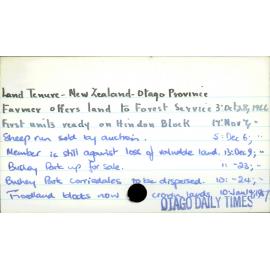 Land Tenure - New Zealand - Otago Province
Farmer offers land to Forest Service 3: Oct 28, 1966
First units ready on Hindon Block 17: Nov 7, "
Sheep run sold by auction. 5: Dec 6; "
Member is still against loss of valuable land. 13: Dec 9; "
Bushey Park up for sale. 11 - 23; "
Bushey Park corriedales to be dispersed. 10: - 24; "
Froodland blocks now crown lands. 10: Jan 19, 1967
OTAGO DAILY TIMES